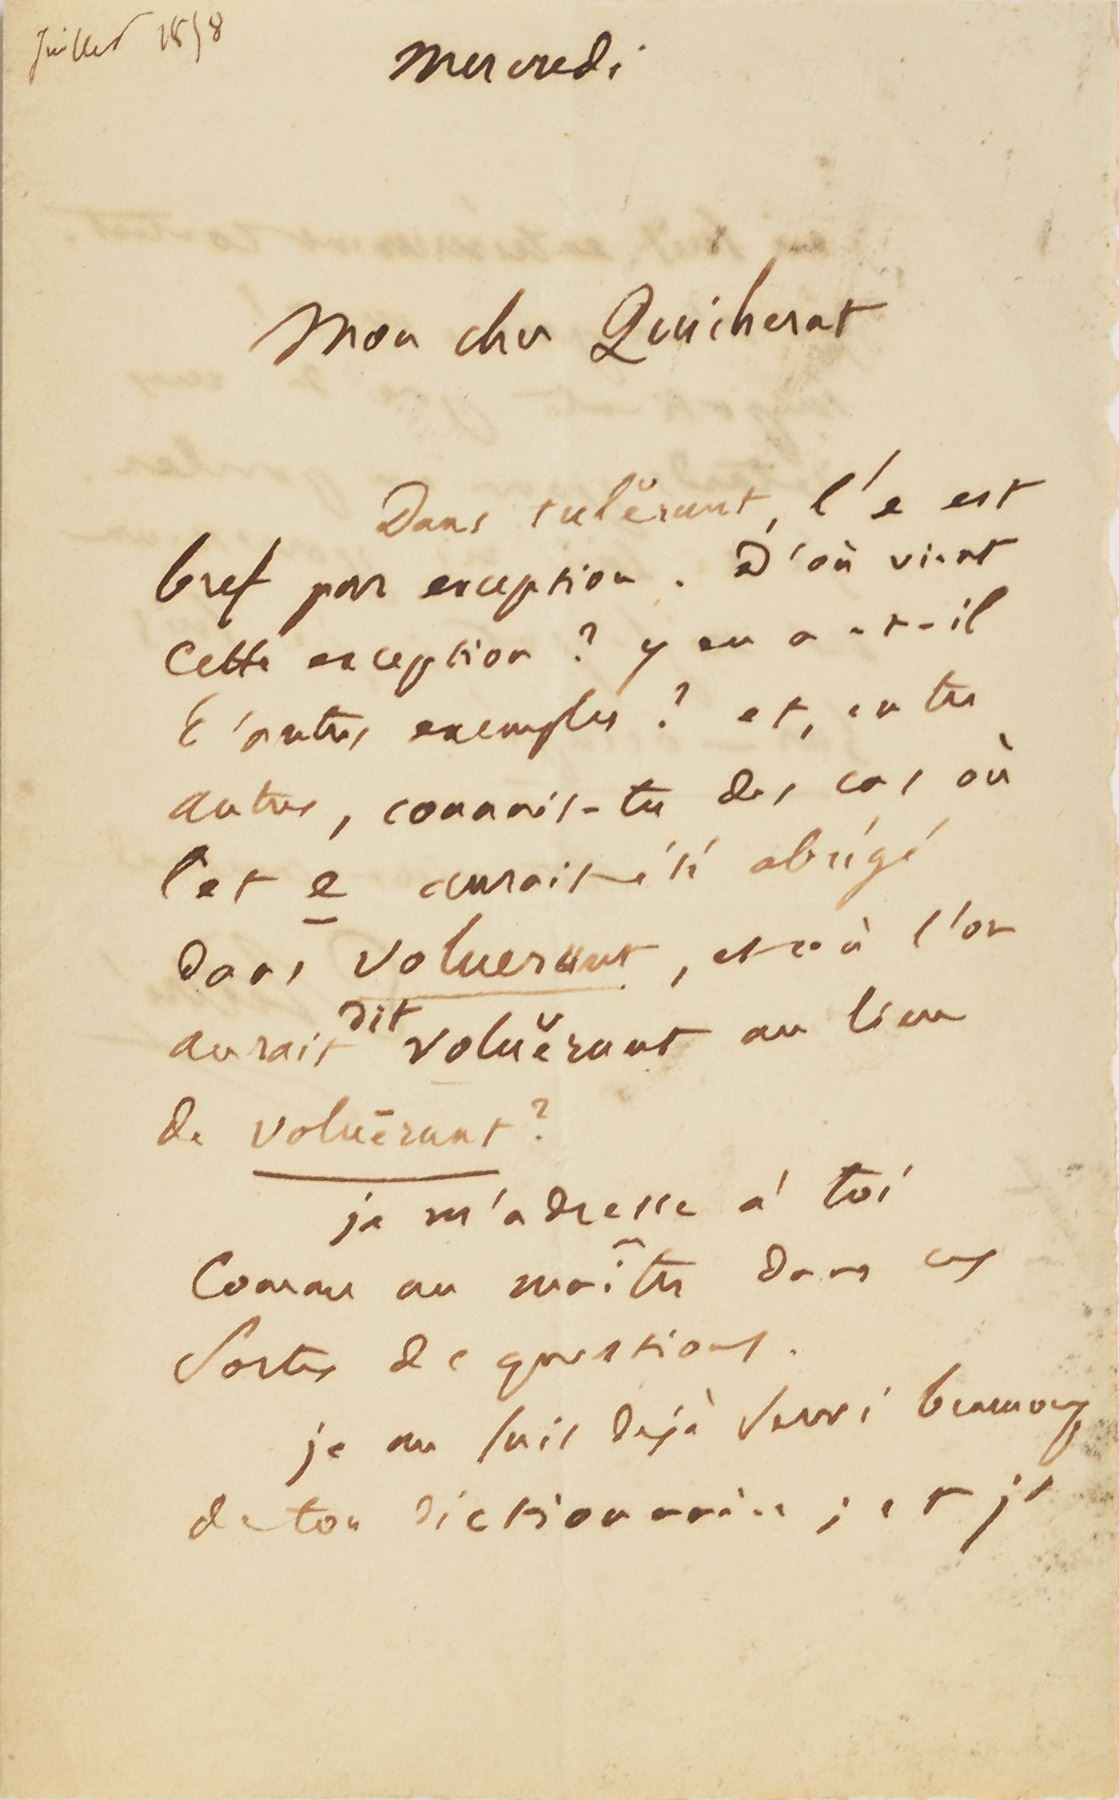 Juillet 1858
Mercredi
Mon cher Quicherat
Dans tulĕrunt, l'e est
bref par exception. D'où vient
cette exception ? y en a-t-il
d'autres exemples ? et, entre
autres, connais-tu des cas où
cet e aurait été abrégé
dans voluerunt, et où l'on
aurait dit voluĕrunt au lieu
de voluērunt ?
je m'adresse à toi
comme au maître dans ces
sortes de questions.
je me suis déjà servi beaucoup
de ton dictionnaire ; et je